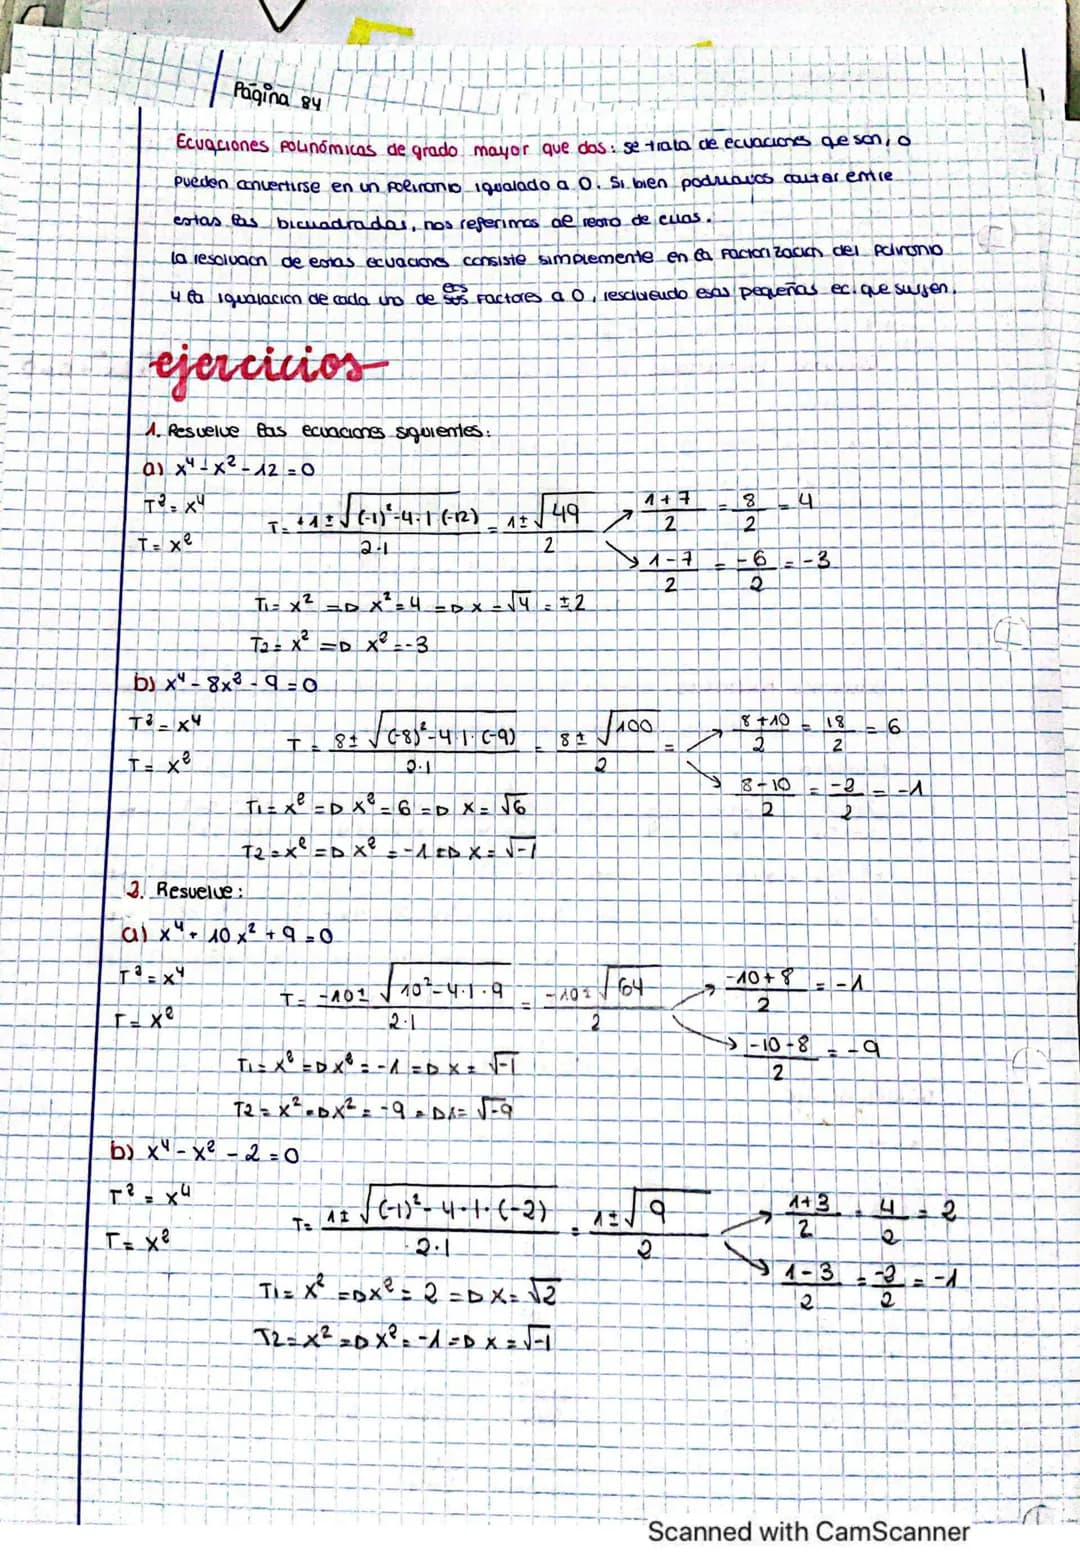 Página 84
Ecuaciones polinómicas de grado mayor que dos: se trata de ecuaciones qe son, o
pueden convertirse en un polinomio igualado a 0. Si bien podríamos contar entre
estas las bicuadradas, nos referimos al resto de ellas.
la resolución de estas ecuaciones consiste simplemente en la factorización del polinomio
y la igualación de cada uno de sus factores a 0, resolviendo esas pequeñas ec. que surgen.
ejercicios
1. Resuelve las ecuaciones siguientes:
a) x⁴ - x² - 12 = 0
T² = x⁴
T = x²
T = +1 ± √(-1)² - 4·1 (-12) / 2·1 = 1 ± √49 / 2
1+7 / 2 = 8 / 2 = 4
1-7 / 2 = -6 / 2 = -3
T1 = x² => x² = 4 => x = √4 = ±2
T2 = x² => x² = -3
b) x⁴ - 8x² - 9 = 0
T² = x⁴
T = x²
T = 8 ± √(-8)² - 4·1·(-9) / 2·1 = 8 ± √100 / 2 =
8+10 / 2 = 18 / 2 = 6
8-10 / 2 = -2 / 2 = -1
T1 = x² => x² = 6 => x = √6
T2 = x² => x² = -1 => x = √-1
2. Resuelve:
a) x⁴ + 10x² + 9 = 0
T² = x⁴
T = x²
T = -10 ± √10² - 4·1·9 / 2·1 = -10 ± √64 / 2
-10+8 / 2 = -1
-10-8 / 2 = -9
T1 = x² => x² = -1 => x = √-1
T2 = x² => x² = -9 => x = √-9
b) x⁴ - x² - 2 = 0
T² = x⁴
T = x²
T = 1 ± √(-1)² - 4·1·(-2) / 2·1 = 1 ± √9 / 2
1+3 / 2 = 4 / 2 = 2
1-3 / 2 = -2 / 2 = -1
T1 = x² => x² = 2 => x = √2
T2 = x² => x² = -1 => x = √-1
Scanned with CamScanner